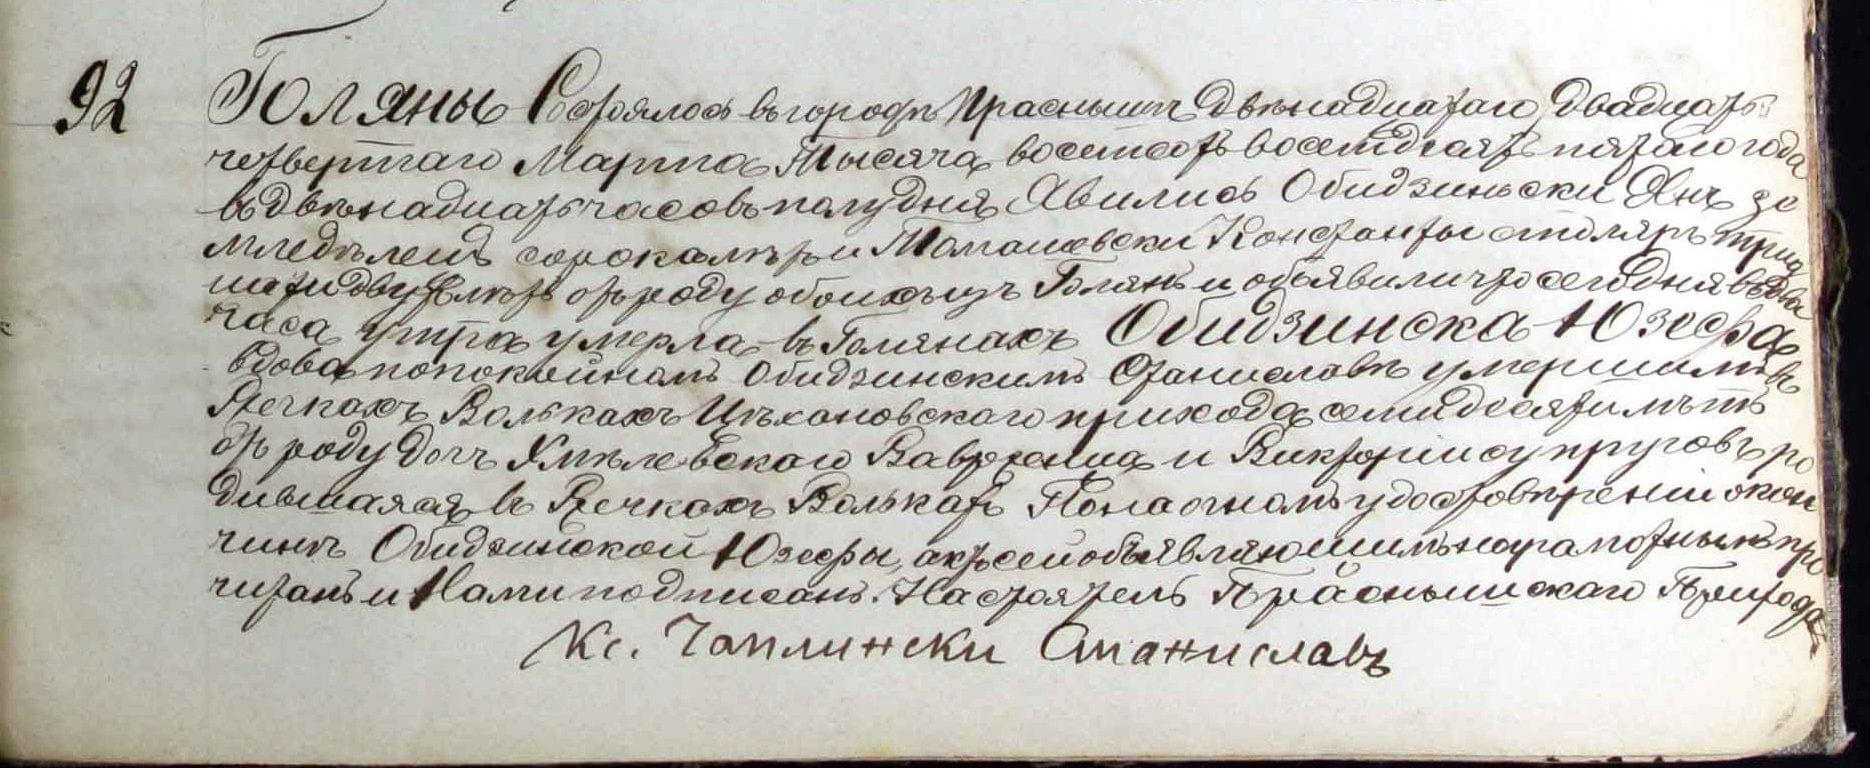 92 Голяны Состоялось въ городѣ Праснышѣ двѣнадцатаго двадцать
четвертаго Марта Тысяча восемсотъ восемдесятъ пятаго года
въ двѣнадцать часовъ полудня Явились Обидзински Янъ зе
мледѣлецъ сорока лѣтъ и Томашевски Константы столяръ трид
цати двухъ лѣтъ отъ роду обои съ изъ Голянъ и объявили что сегодня въ два
часа утра умерла въ Голянахъ Обидзинска Юзефа
вдова по покойномъ Обидзинскимъ Станиславѣ умершимъ въ
Речкахъ Волькахъ Цѣхановскаго прихода семидесяти лѣтъ
отъ роду дочь Хмѣлевскаго Вавренца и Викторіи супруговъ ро
дившаяся въ Речкахъ Волькахъ По настномъ удостовѣреніи о кон
чинѣ Обидзинской Юзефы, актъ сей объявляющимъ неграмотнымъ про
читанъ и Нами подписанъ. Настоятель Праснышскаго Прихода
Кс. Чаплински Станиславъ